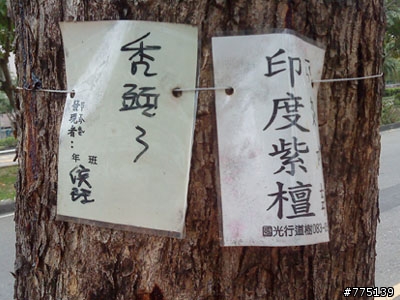 禿頭了
發現者:
年 班
印度紫檀
國光行道樹083-
#775139